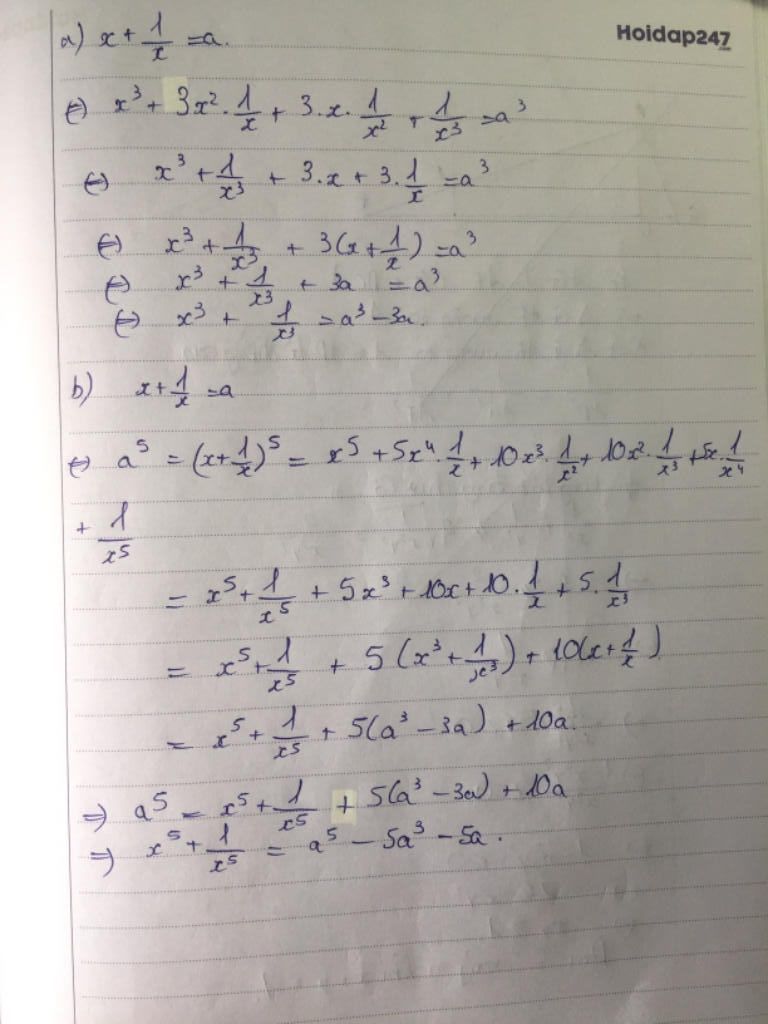 Hoidap247
a) x + 1/x = a.
⇔ x³ + 3x² · 1/x + 3 · x · 1/x² + 1/x³ = a³
⇔ x³ + 1/x³ + 3 · x + 3 · 1/x = a³
⇔ x³ + 1/x³ + 3(x + 1/x) = a³
⇔ x³ + 1/x³ + 3a = a³
⇔ x³ + 1/x³ = a³ - 3a.
b) x + 1/x = a
⇔ a⁵ = (x + 1/x)⁵ = x⁵ + 5x⁴ · 1/x + 10x³ · 1/x² + 10x² · 1/x³ + 5x · 1/x⁴
+ 1/x⁵
= x⁵ + 1/x⁵ + 5x³ + 10x + 10 · 1/x + 5 · 1/x³
= x⁵ + 1/x⁵ + 5(x³ + 1/x³) + 10(x + 1/x)
= x⁵ + 1/x⁵ + 5(a³ - 3a) + 10a.
⇒ a⁵ = x⁵ + 1/x⁵ + 5(a³ - 3a) + 10a
⇒ x⁵ + 1/x⁵ = a⁵ - 5a³ - 5a.